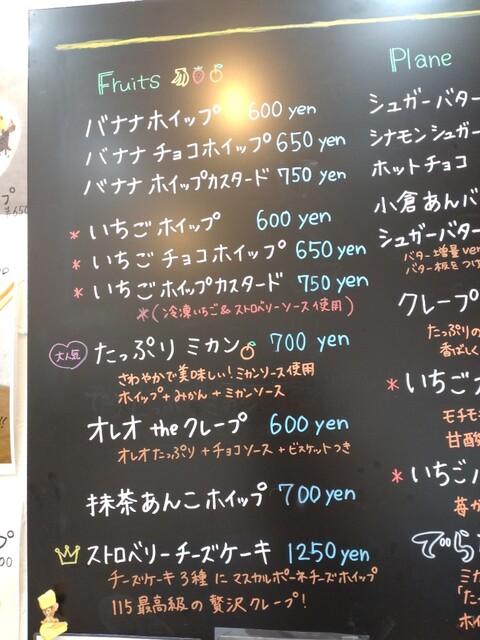 Fruits
バナナホイップ 600 yen
バナナ チョコホイップ 650 yen
バナナ ホイップカスタード 750 yen
* いちご ホイップ 600 yen
* いちご チョコホイップ 650 yen
* いちご ホイップカスタード 750 yen
*(冷凍いちご&ストロベリーソース使用)
大人気 たっぷり ミカン 700 yen
さわやかで美味しい!ミカンソース使用
ホイップ+みかん+ミカンソース
オレオ theクレープ 600 yen
オレオたっぷり+チョコソース+ビスケットつき
抹茶あんこホイップ 700 yen
ストロベリーチーズケーキ 1250 yen
チーズケーキ3種にマスカルポーネチーズホイップ
115最高級の贅沢クレープ!
Plane
シュガーバター
シナモンシュガー
ホットチョコ
小倉あんバ
シュガーバター
バター増量ver
バター板をつけ
クレープ
たっぷりの
香ばしく
* いちご
モチモ
甘酸
* いちご
苺が
てづら
ミカ
「たっ
ホイ